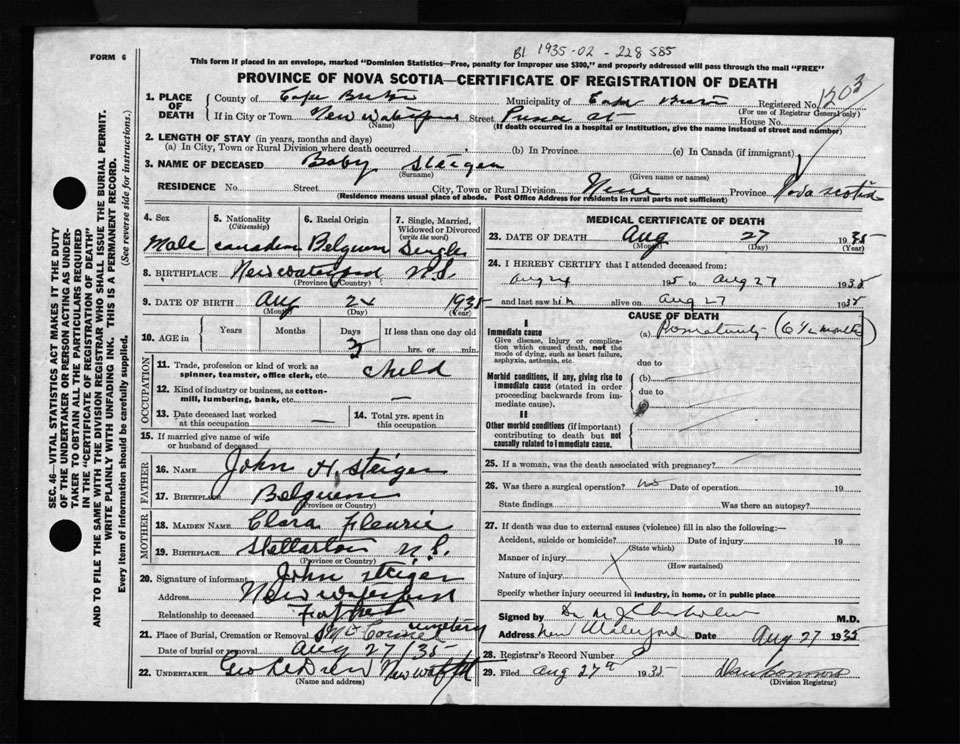 B1 1935-02-228585
FORM 6
This form if placed in an envelope, marked "Dominion Statistics—Free, penalty for improper use $300," and properly addressed will pass through the mail "FREE"
PROVINCE OF NOVA SCOTIA—CERTIFICATE OF REGISTRATION OF DEATH
1. PLACE OF DEATH County of Cape Breton Municipality of Cape Breton Registered No. 1203
(For use of Registrar General only)
If in City or Town New Waterford Street St House No.
(Name) (If death occurred in a hospital or institution, give the name instead of street and number)
2. LENGTH OF STAY (in years, months and days)
(a) In City, Town or Rural Division where death occurred (b) In Province (c) In Canada (if immigrant)
3. NAME OF DECEASED Baby Steiger
(Surname) (Given name or names)
RESIDENCE No. Street City, Town or Rural Division Province Nova Scotia
(Residence means usual place of abode. Post Office Address for residents in rural parts not sufficient)
4. Sex Male
5. Nationality (Citizenship) Canadian
6. Racial Origin Belgium
7. Single, Married, Widowed or Divorced (write the word) Single
8. BIRTHPLACE New Waterford N.S.
(Province or Country)
9. DATE OF BIRTH Aug 24 1935
(Month) (Day) (Year)
10. AGE in Years Months Days 3 If less than one day old hrs. or min.
OCCUPATION
11. Trade, profession or kind of work as spinner, teamster, office clerk, etc. child
12. Kind of industry or business, as cotton-mill, lumbering, bank, etc. —
13. Date deceased last worked at this occupation —
14. Total yrs. spent in this occupation —
15. If married give name of wife or husband of deceased
FATHER
16. NAME John H. Steiger
17. BIRTHPLACE Belguem
(Province or Country)
MOTHER
18. MAIDEN NAME Clara Fleurie
19. BIRTHPLACE Stellarton N.S.
(Province or Country)
20. Signature of informant John Steiger
Address New Waterford
Relationship to deceased Father
21. Place of Burial, Cremation or Removal cemetery
Date of burial or removal Aug 27/35
22. UNDERTAKER New Watfd
(Name and address)
MEDICAL CERTIFICATE OF DEATH
23. DATE OF DEATH Aug 27 1935
(Month) (Day) (Year)
24. I HEREBY CERTIFY that I attended deceased from:
Aug 24 195 to Aug 27 1935
and last saw him alive on Aug 27 1935
CAUSE OF DEATH
I
Immediate cause
Give disease, injury or complication which caused death, not the mode of dying, such as heart failure, asphyxia, asthenia, etc.
(a) (6½ months)
due to
Morbid conditions, if any, giving rise to immediate cause (stated in order proceeding backwards from immediate cause).
(b)
due to
II
Other morbid conditions (if important) contributing to death but not causally related to immediate cause.
(c)
25. If a woman, was the death associated with pregnancy?
26. Was there a surgical operation? no Date of operation 19
State findings Was there an autopsy?
27. If death was due to external causes (violence) fill in also the following:—
Accident, suicide or homicide? Date of injury 19
(State which)
Manner of injury
(How sustained)
Nature of injury
Specify whether injury occurred in industry, in home, or in public place
Signed by Dr M J Chisholm M.D.
Address New Waterford Date Aug 27 1935
28. Registrar's Record Number
29. Filed Aug 27th 1935
(Division Registrar)
SEC. 46—VITAL STATISTICS ACT MAKES IT THE DUTY
OF THE UNDERTAKER OR PERSON ACTING AS UNDER-
TAKER TO OBTAIN ALL THE PARTICULARS REQUIRED
IN THE "CERTIFICATE OF REGISTRATION OF DEATH"
AND TO FILE THE SAME WITH THE DIVISION REGISTRAR WHO SHALL ISSUE THE BURIAL PERMIT.
WRITE PLAINLY WITH UNFADING INK. THIS IS A PERMANENT RECORD.
Every item of information should be carefully supplied. (See reverse side for instructions.)